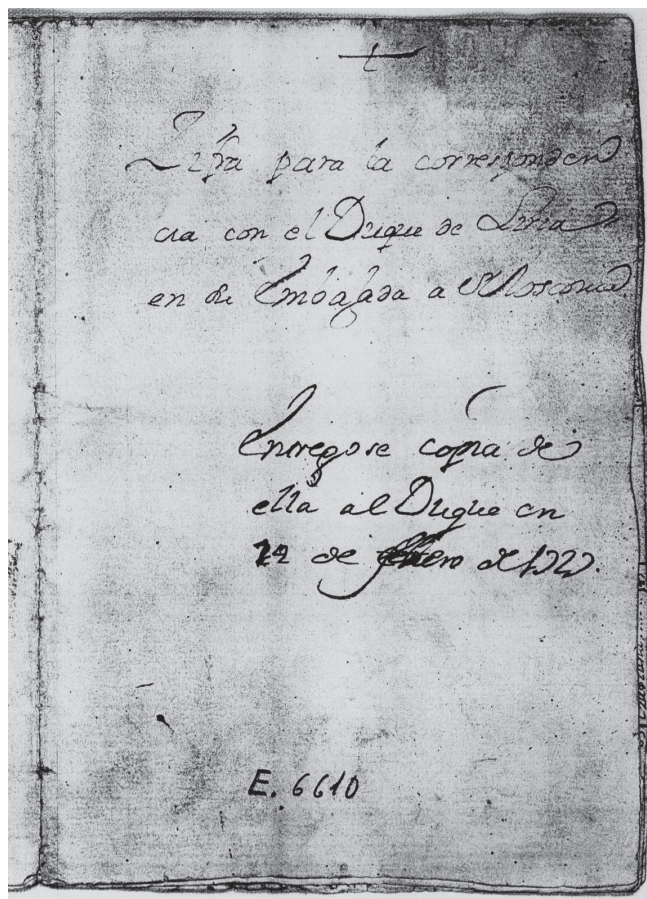 Zifra para la corresponden
cia con el Duque de Liria
en su Embajada a Moscovia
Entregose copia de
ella al Duque en
de de 1727.
E. 6610